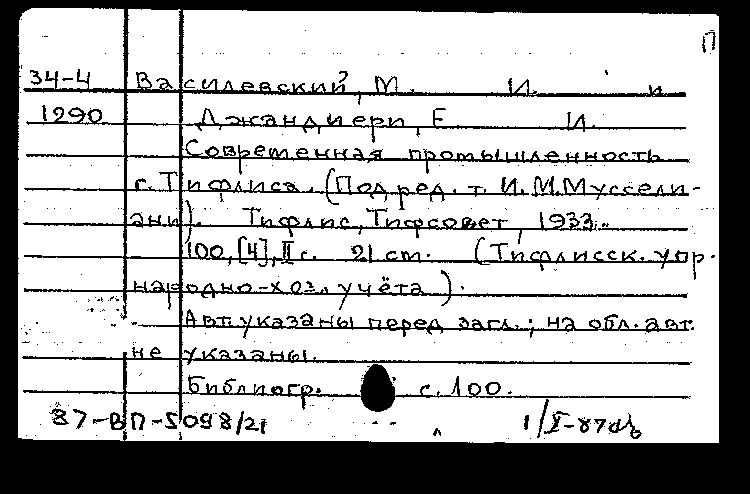 П
34-4 Василевский, М. И. и
1290 Джандиери, Е И.
Современная промышленность
г. Тифлиса. (Под ред. т. И.М.Муссели-
ани). Тифлис, Тифсовет, 1933.
100, [4], II с. 21 см. (Тифлисск. упр.
народно-хоз. учёта).
Авт. указаны перед загл.; на обл. авт.
не указаны.
Библиогр. с. 100.
87-ВП-5098/21 1/X-87